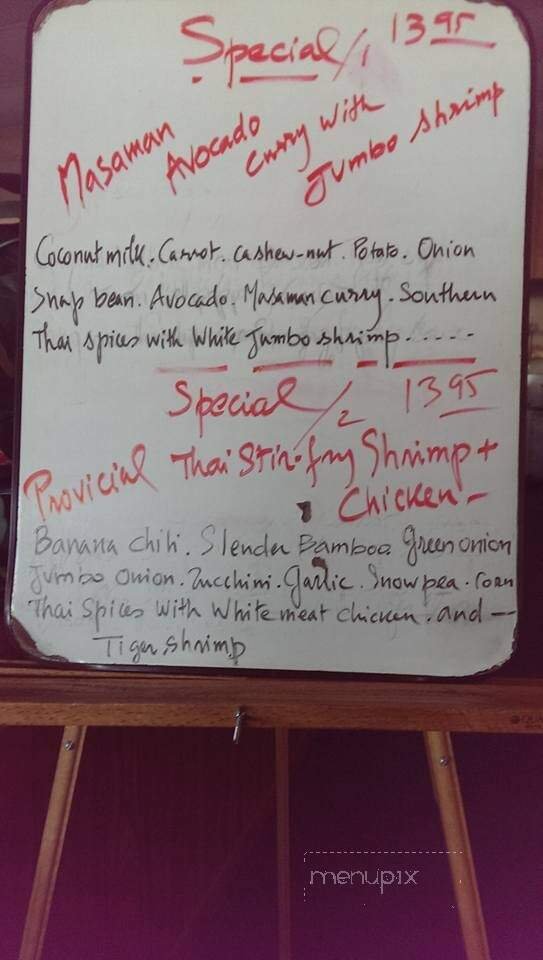 Special/1 13 95
Masaman Avocado curry with Jumbo shrimp
Coconut milk. Carrot. cashew-nut. Potato. Onion
Snap bean. Avocado. Masaman curry. Southern
Thai spices with White Jumbo shrimp.....
Special/2 13 95
Provicial Thai Stir-fry Shrimp +
Chicken-
Banana Chili. Slender Bamboo Green onion
Jumbo Onion. Zucchini. Garlic. Snow pea. Corn
Thai Spices With White meat chicken. and --
Tiger shrimp
menupix